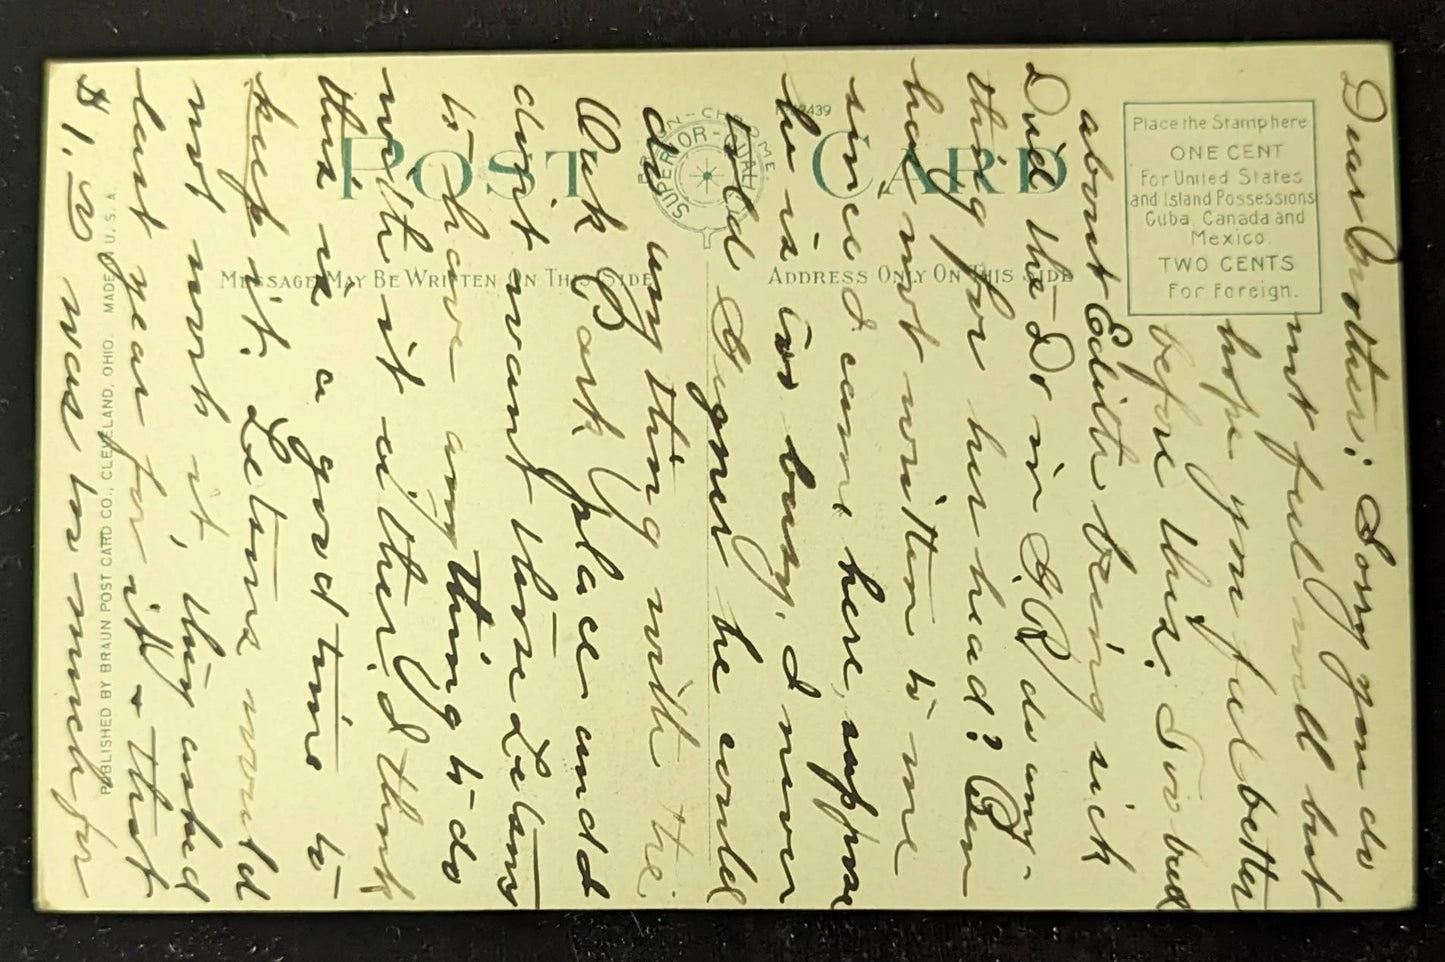 Dear Brother: Sorry you do
not feel well but
hope you feel better
before this. Too bad
about Edith being sick
Did the Dr in G.R. do any-
thing for her head? Ben
has not written to me
since I came here, suppose
he is too busy. I never
told Signer he could
do any thing with the
Oak Park place and I
don't want those Letams
to have any thing to do
with it either. I think
this is a good time to
keep it. Letams would
not work it, they asked
last year for it & that
$1.20 was to much for
POST CARD
SUPERIOR-QUAL
MESSAGE MAY BE WRITTEN ON THIS SIDE
ADDRESS ONLY ON THIS SIDE
Place the Stamp here
ONE CENT
For United States
and Island Possessions
Cuba, Canada and
Mexico.
TWO CENTS
For Foreign.
PUBLISHED BY BRAUN POST CARD CO., CLEVELAND, OHIO. MADE U. S. A.